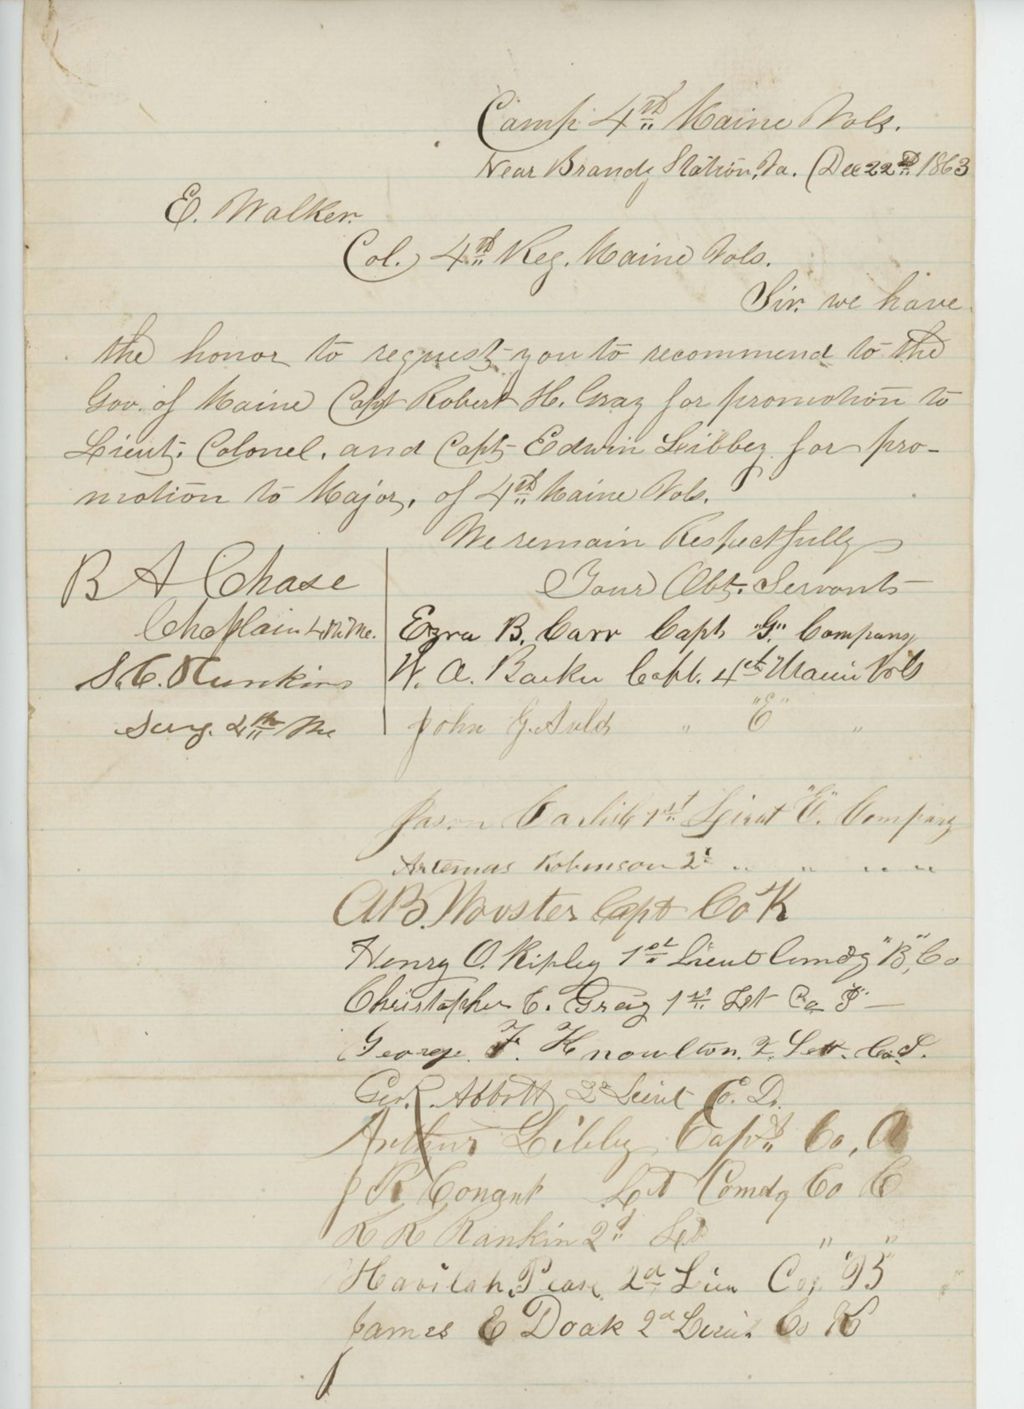 Camp 4th Maine Vols.
Near Brandy Station, Va. Dec 22d 1863
E. Walker.
Col. 4th Reg. Maine Vols.
Sir. we have
the honor to request you to recommend to the
Gov. of Maine Capt Robert H. Gray for promotion to
Lieut. Colonel. and Capt Edwin Libbey for pro-
motion to Major, of 4th Maine Vols.
We remain Respectfully
Your Obt. Servants
B A Chase
Chaplain 4th Me.
S. C. Hunkins
Surg. 4th Me
Ezra B. Carr Capt "G" Company
W. A. Barker Capt. 4th Maine Vols
John G. Auld " "E" "
Jason Carlile 1st Lieut "E" Company
Artemas Robinson 2d " " " "
A B. Wooster Capt Co K
Henry O. Ripley 1st Lieut Comdg "B" Co
Christopher C. Gray 1st Lt Co
George F. Knowlton. 2 Lett. Co.
Geo. R. Abbott 2d Lieut Co. D.
Arthur Libby Capt Co, A
J R Conant Lt Comdg Co C
K K Rankin 2d Lt " "
Havilah Pease 2d Lieu Co, "B"
James E Doak 2d Lieut Co K